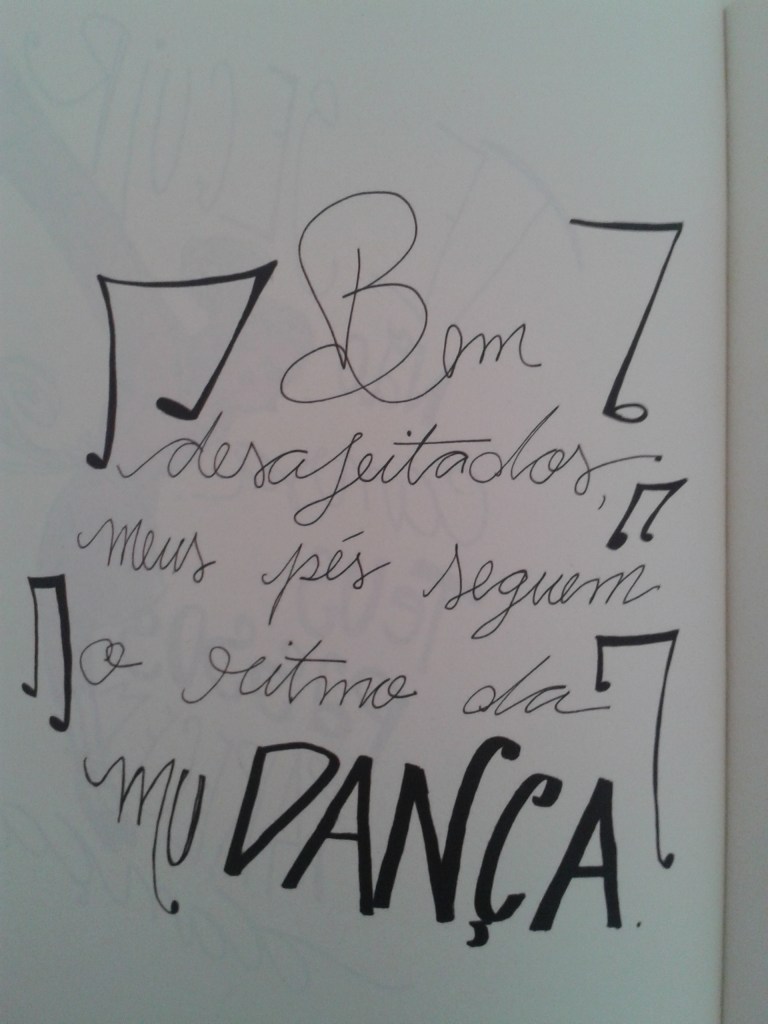 Bem
desajeitados,
meus pés seguem
o ritmo da
muDANÇA.